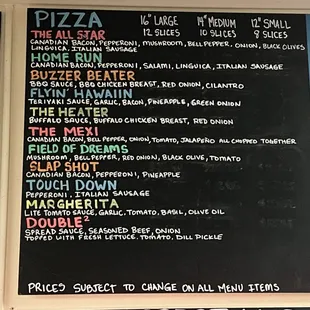 PIZZA 16" LARGE 14" MEDIUM 12" SMALL
12 SLICES 10 SLICES 8 SLICES
THE ALL STAR
CANADIAN BACON, PEPPERONI, MUSHROOM, BELL PEPPER, ONION, BLACK OLIVES
LINGUICA, ITALIAN SAUSAGE
HOME RUN
CANADIAN BACON, PEPPERONI, SALAMI, LINGUICA, ITALIAN SAUSAGE
BUZZER BEATER
BBQ SAUCE, BBQ CHICKEN BREAST, RED ONION, CILANTRO
FLYIN' HAWAIIN
TERIYAKI SAUCE, GARLIC, BACON, PINEAPPLE, GREEN ONION
THE HEATER
BUFFALO SAUCE, BUFFALO CHICKEN BREAST, RED ONION
THE MEXI
CANADIAN BACON, BELL PEPPER, ONION, TOMATO, JALAPEÑO ALL CHOPPED TOGETHER
FIELD OF DREAMS
MUSHROOM, BELL PEPPER, RED ONION, BLACK OLIVE, TOMATO
SLAP SHOT
CANADIAN BACON, PEPPERONI, PINEAPPLE
TOUCH DOWN
PEPPERONI, ITALIAN SAUSAGE
MARGHERITA
LITE TOMATO SAUCE, GARLIC, TOMATO, BASIL, OLIVE OIL
DOUBLE²
SPREAD SAUCE, SEASONED BEEF, ONION
TOPPED WITH FRESH LETTUCE, TOMATO, DILL PICKLE
PRICES SUBJECT TO CHANGE ON ALL MENU ITEMS